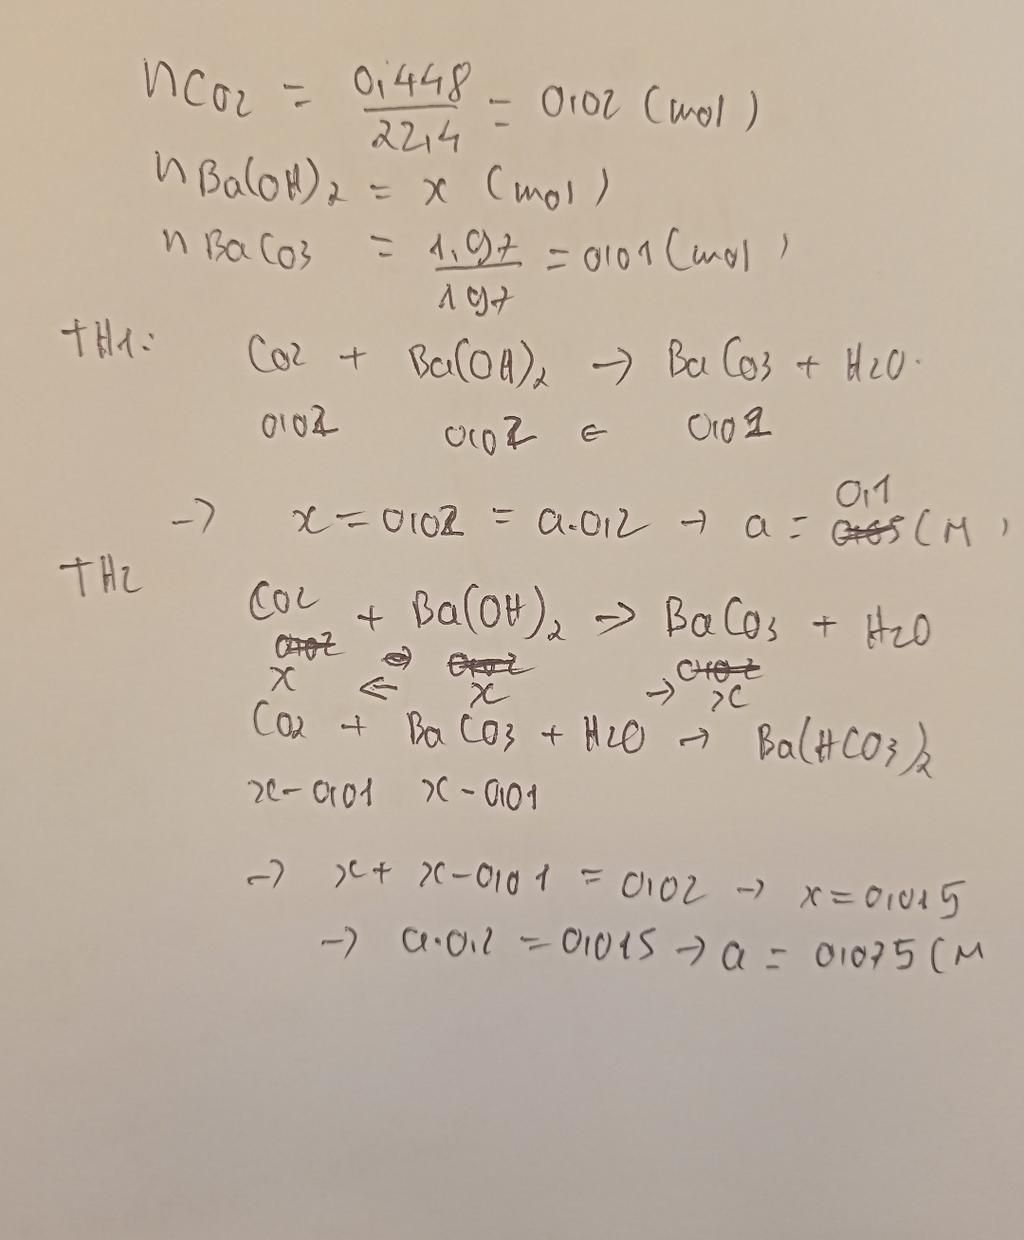 nCO2 = 0,448 / 22,4 = 0,02 (mol)
nBa(OH)2 = x (mol)
nBaCO3 = 1,97 / 197 = 0,01 (mol)
TH1: CO2 + Ba(OH)2 → BaCO3 + H2O.
0,02 0,02 ← 0,02
→ x = 0,02 = a.0,2 → a = 0,1 (M)
TH2 CO2 + Ba(OH)2 → BaCO3 + H2O
x ← x → x
CO2 + BaCO3 + H2O → Ba(HCO3)2
x-0,01 x-0,01
→ x + x-0,01 = 0,02 → x = 0,015
→ a.0,2 = 0,015 → a = 0,075 (M